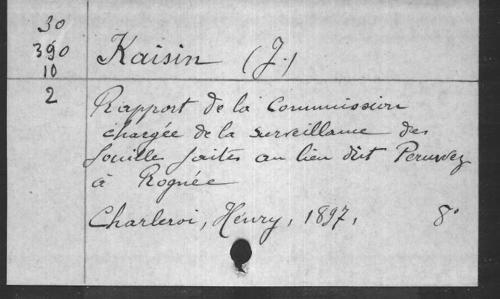 30
390
10
2
Kaisin (J.)
Rapport de la Commission
chargée de la surveillance des
fouille faites au lieu dit Peruwez
à Rognée
Charleroi, Henry, 1897, 8°